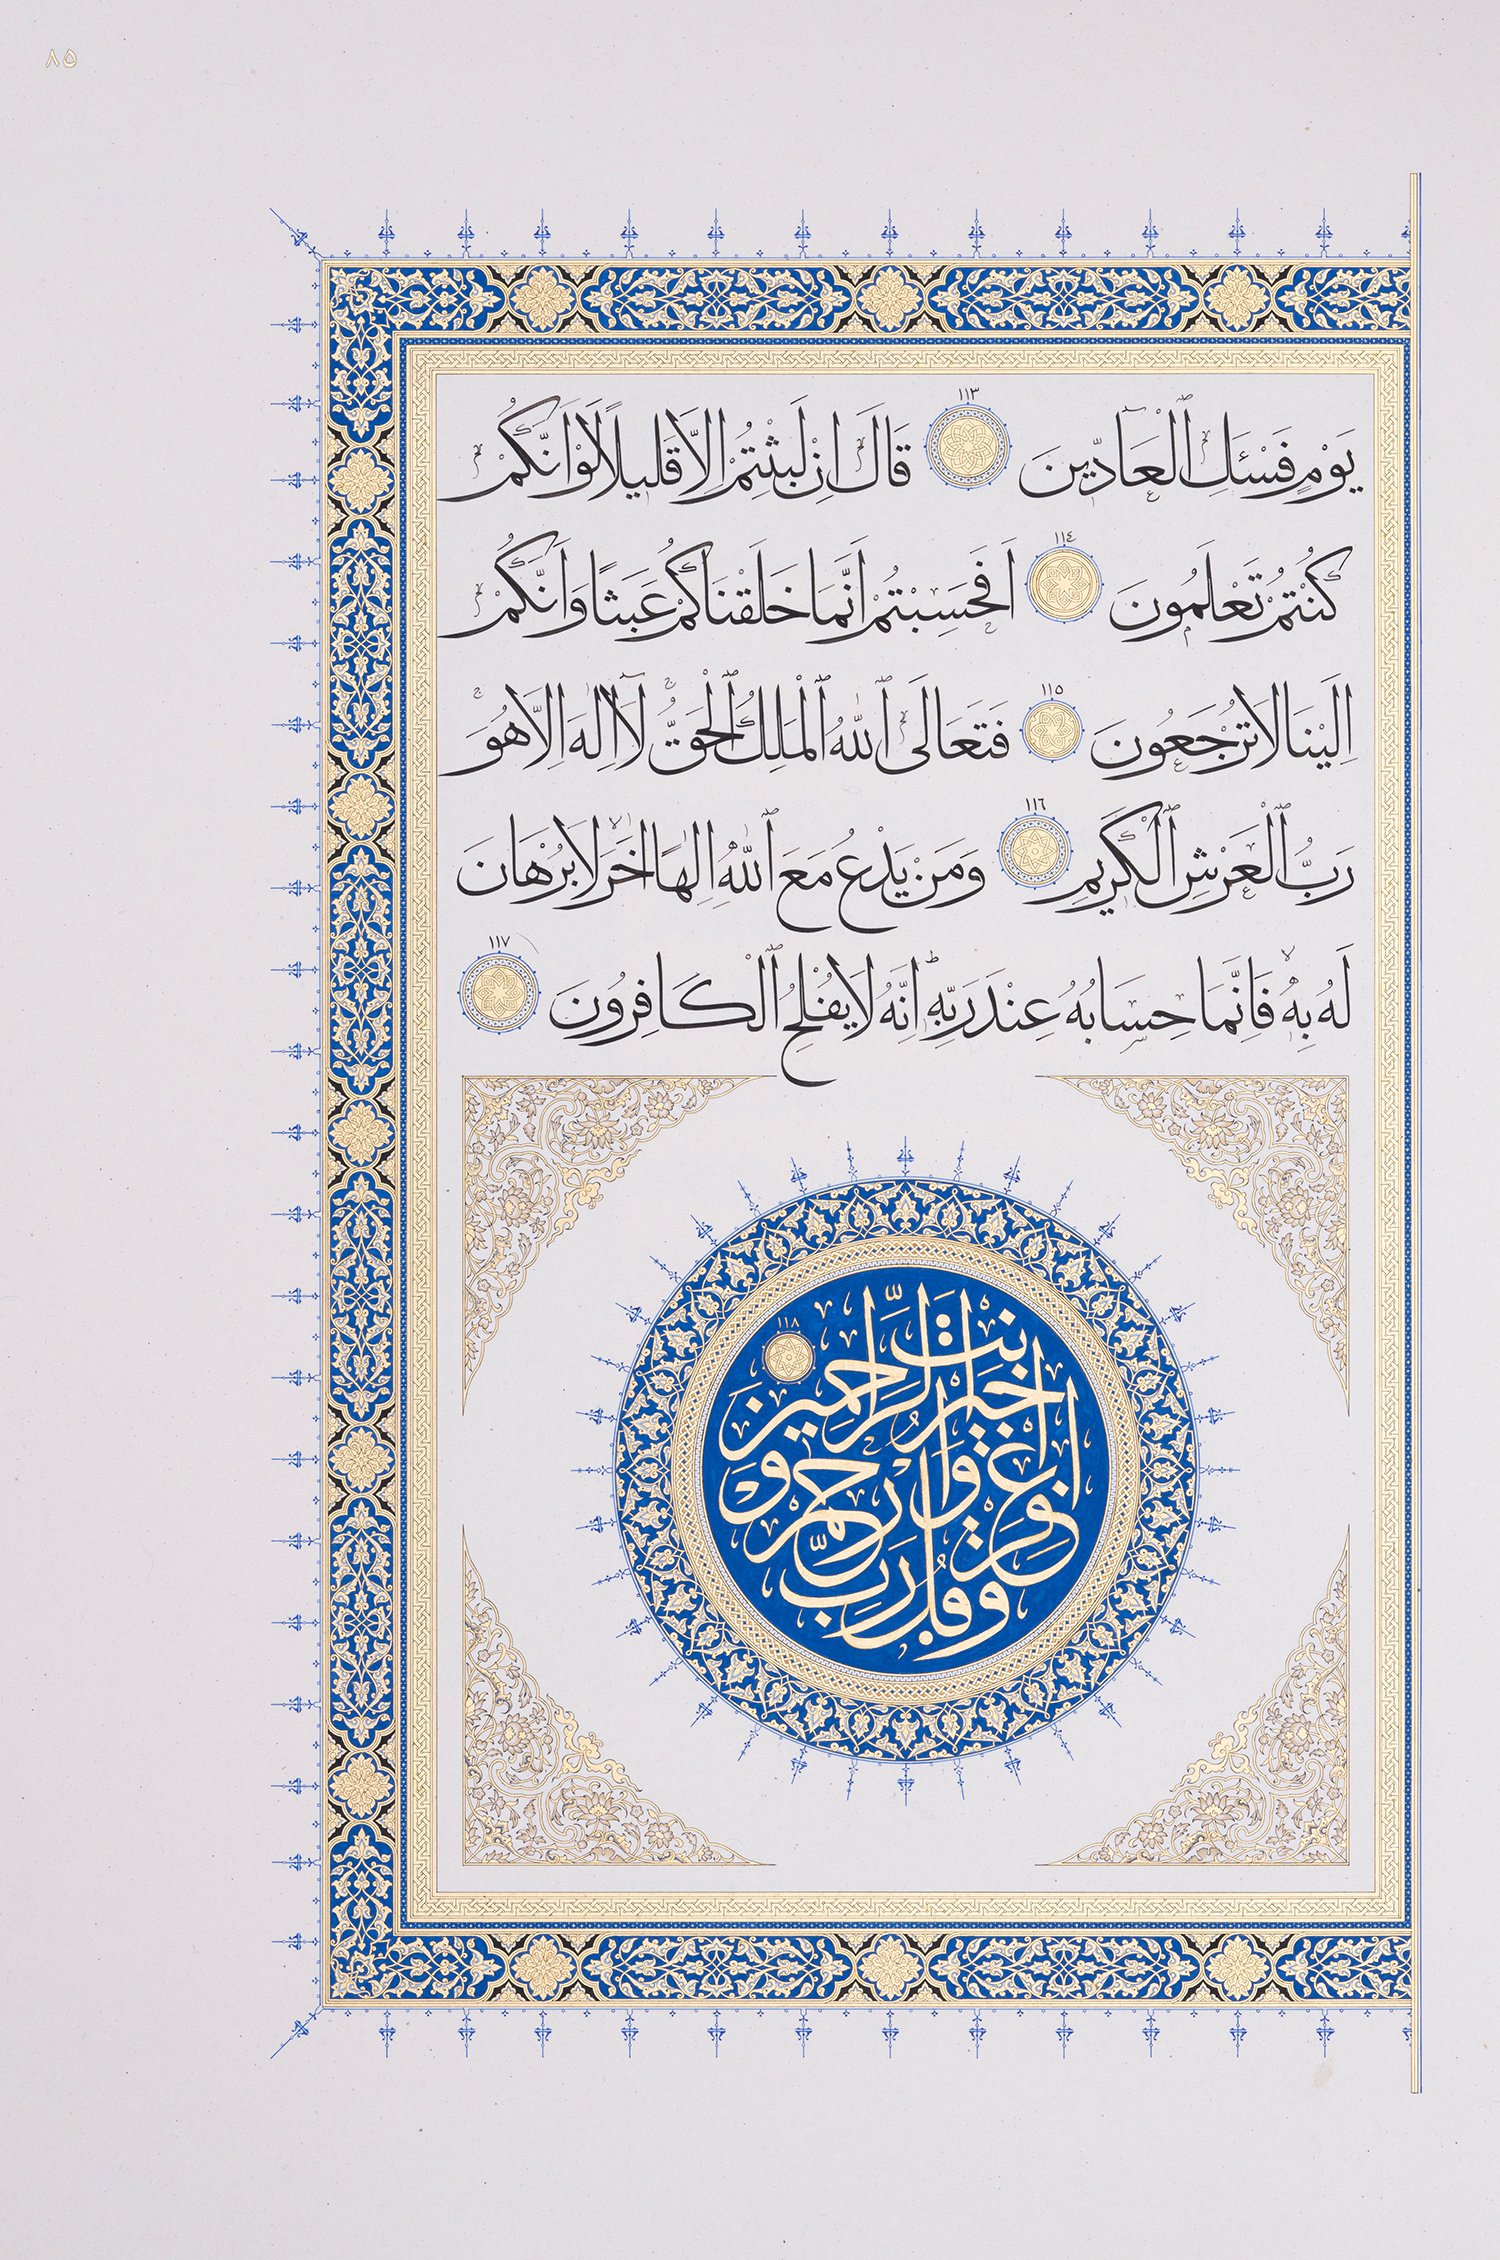 ٨٥
يَوْمٍ فَسْـَٔلِ ٱلْعَٓادِّينَ ١١٣ قَالَ اِنْ لَبِثْتُمْ اِلَّا قَلِيلًا لَوْ اَنَّكُمْ
كُنْتُمْ تَعْلَمُونَ ١١٤ اَفَحَسِبْتُمْ اَنَّمَا خَلَقْنَاكُمْ عَبَثًا وَاَنَّكُمْ
اِلَيْنَا لَا تُرْجَعُونَ ١١٥ فَتَعَالَى ٱللّٰهُ ٱلْمَلِكُ ٱلْحَقُّ لَٓا اِلٰهَ اِلَّا هُوَ
رَبُّ ٱلْعَرْشِ ٱلْكَرِيمِ ١١٦ وَمَنْ يَدْعُ مَعَ ٱللّٰهِ اِلٰهًا اٰخَرَ لَا بُرْهَانَ
لَهُ بِهِ فَاِنَّمَا حِسَابُهُ عِنْدَ رَبِّهِ اِنَّهُ لَا يُفْلِحُ ٱلْكَافِرُونَ ١١٧
وَقُلْ رَبِّ اغْفِرْ وَارْحَمْ وَاَنْتَ خَيْرُ الرَّاحِمِينَ ١١٨